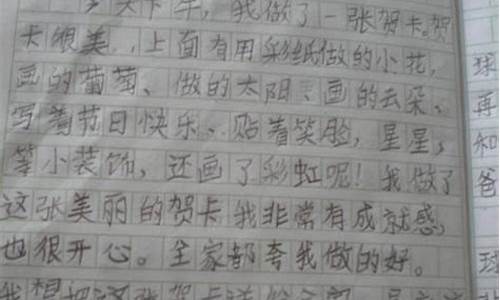 今天下午，我做了一张贺卡。贺
卡很美，上面有用彩纸做的小花，
画的葡萄、做的太阳、画的云朵、
写着节日快乐、贴着笑脸，星星，
等小装饰，还画了彩虹呢！我做了
这张美丽的贺卡我非常有成就感，
也很开心。全家都夸我做的好。
我想把这张贺卡送给
球
再
和
爸
球